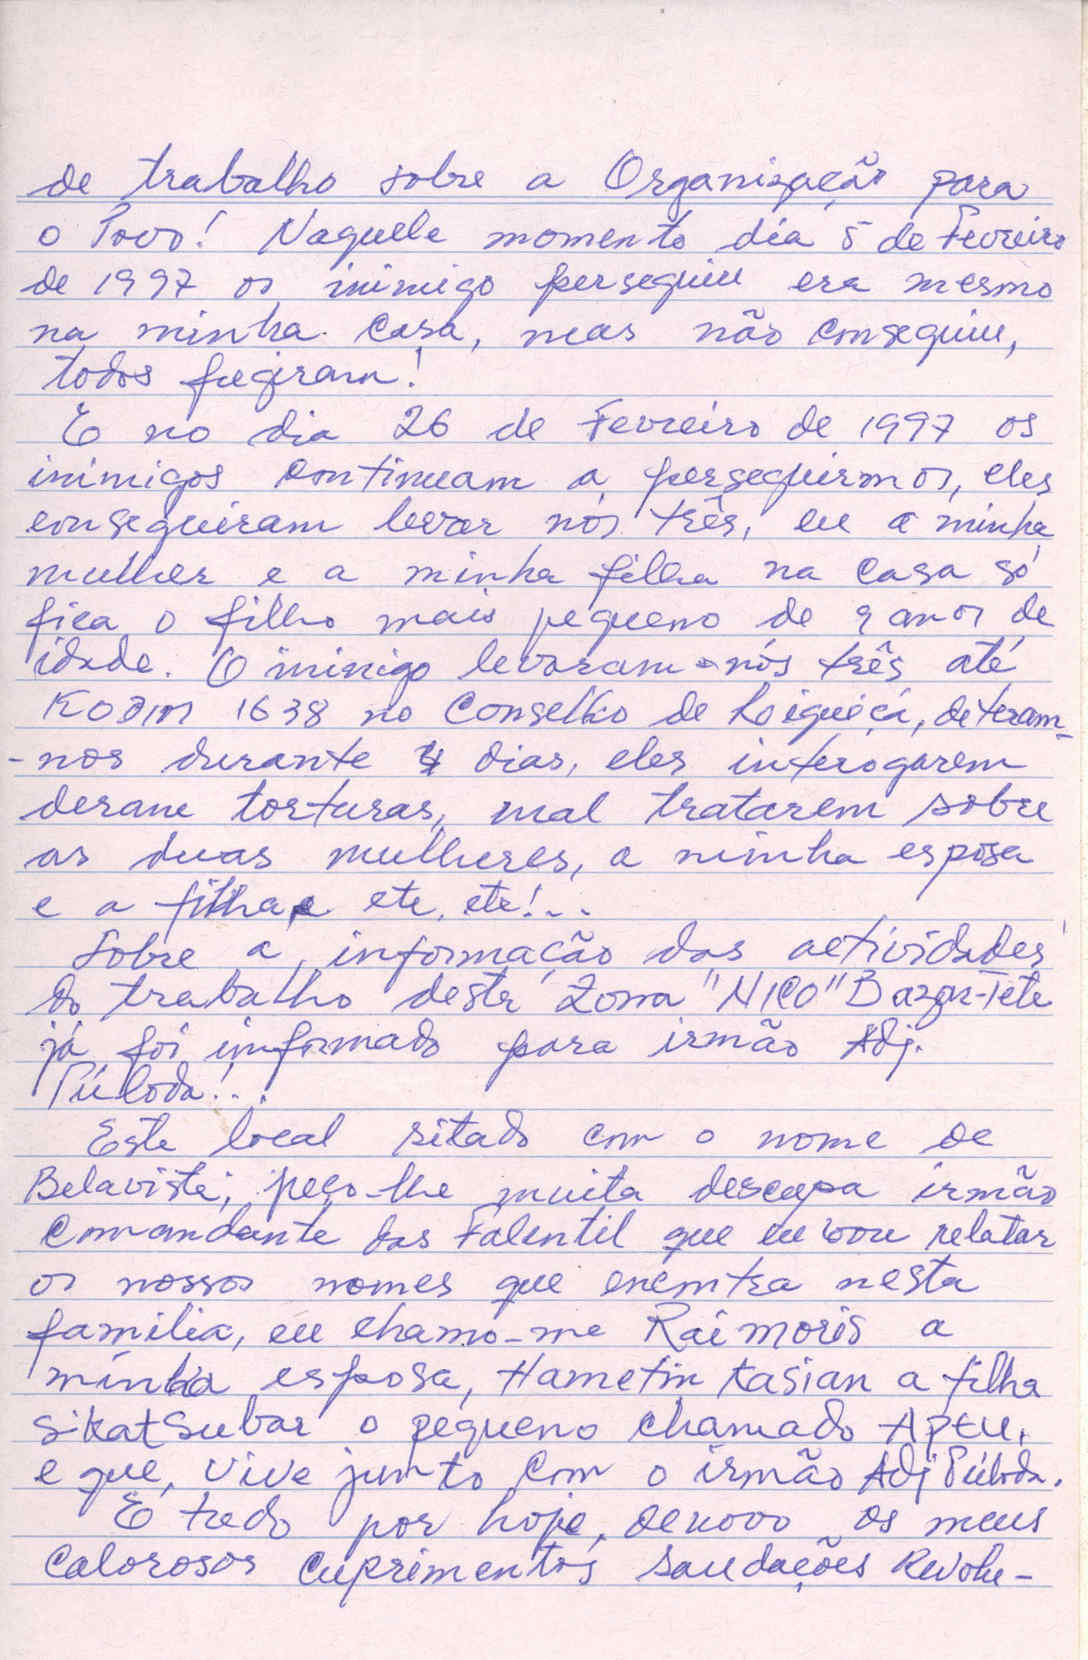 de trabalho sobre a Organização para
o Povo! Naquele momento dia 5 de Fevreiro
de 1997 os inimigo perseguiu era mesmo
na minha casa, mas não conseguiu,
todos fugiram!
E no dia 26 de Fevreiro de 1997 os
inimigos continuam a perseguirmos, eles
conseguiram levar nós três, eu a minha
mulher e a minha filha na casa só
fica o filho mais pequeno de 9 anos de
idade. O inimigo levaram-nós três até
KODIM 1638 no Conselho de Loiquiçá, deteram-
-nos durante 4 dias, eles interogarem
deram torturas, mal tratarem sobre
as duas mulheres, a minha esposa
e a filha, e etc, etc!...
Sobre a informação das actividades
do trabalho desta Zona "NICO" Bazar-Tete
já foi informado para irmão Adj.
Piúloda!...
Este local sitado com o nome de
Belavista, peço-lhe muita descupa irmão
Comandante das Falentil que eu vou relatar
os nossos nomes que encontra nesta
familia, eu chamo-me Raimoris a
minha esposa, Hametin Kasian a filha
Sikat Subar o pequeno chamado APEU.
e que, vive junto com o irmão Adj Piúloda.
É tudo por hoje, denovo os meus
calorosos cuprimentos saudações Revolu-